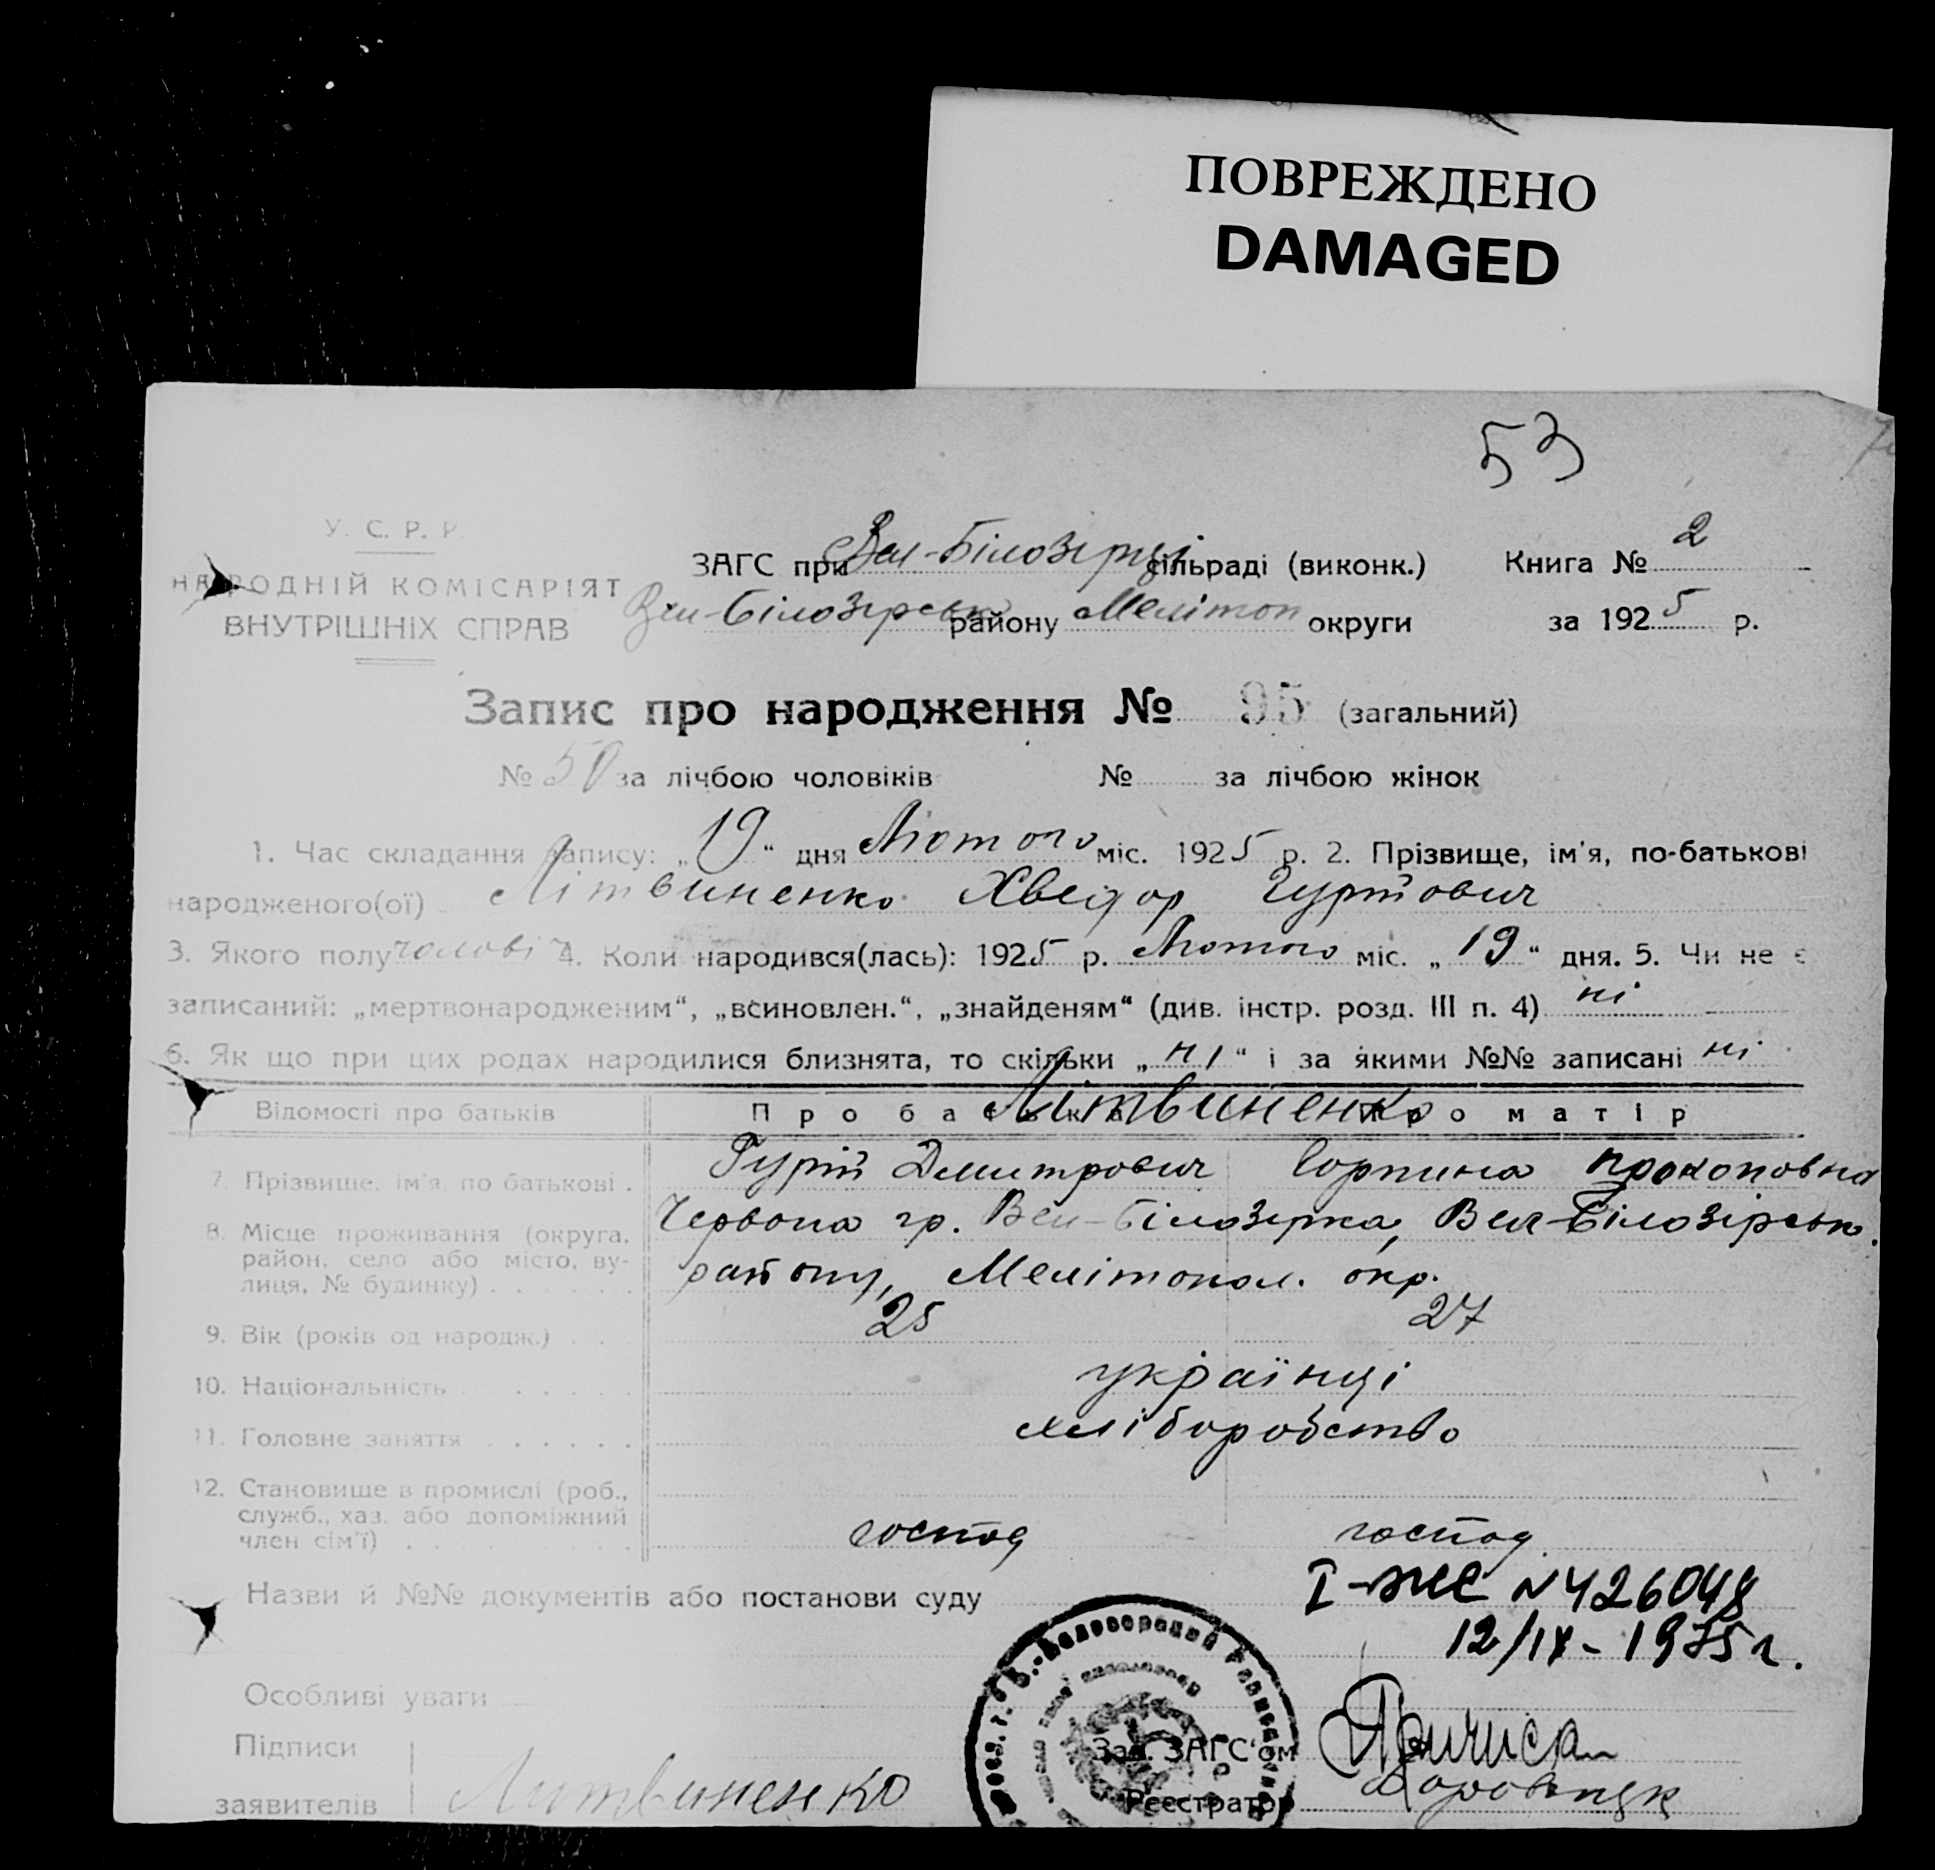 ПОВРЕЖДЕНО
DAMAGED
53
У. С. Р. Р.
НАРОДНІЙ КОМІСАРІЯТ
ВНУТРІШНІХ СПРАВ
ЗАГС при Вел-Білозірці сільраді (виконк.) Книга № 2
Вел-Білозірськ району Мелітоп округи за 1925 р.
Запис про народження № 95 (загальний)
№ 50 за лічбою чоловіків № за лічбою жінок
1. Час складання запису: „19“ дня Лютого міс. 1925 р. 2. Прізвище, ім'я, по-батькові
народженого(ої) Літвиненко Хведор Гурійович
3. Якого полу чолові 4. Коли народився(лась): 1925 р. Лютого міс. „19“ дня. 5. Чи не є
записаний: „мертвонародженим“, „всиновлен.“, „знайденям“ (див. інстр. розд. III п. 4) ні
6. Як що при цих родах народилися близнята, то скільки „ні“ і за якими №№ записані ні
Відомості про батьків Про батька Про матір
Літвиненко
7. Прізвище, ім'я, по батькові . Гурій Дмитрович Горпина Прокоповна
8. Місце проживання (округа, район, село або місто, вулиця, № будинку) . . . . . . Червона гр. Вел-Білозірка, Вел-Білозірськ.
району, Мелітопол. окр.
9. Вік (років од народж.) . . 25 27
10. Національність . . . . . . українці
11. Головне заняття . . . . . . хліборобство
12. Становище в промислі (роб., служб., хаз. або допоміжний член сім'ї) . . . . . . господ господ.
Назви й №№ документів або постанови суду
I-ЖС N 426048
12/IX-1975 г.
Особливі уваги
Підписи
заявителів Литвиненко
Зав. ЗАГС'ом
Реєстратор